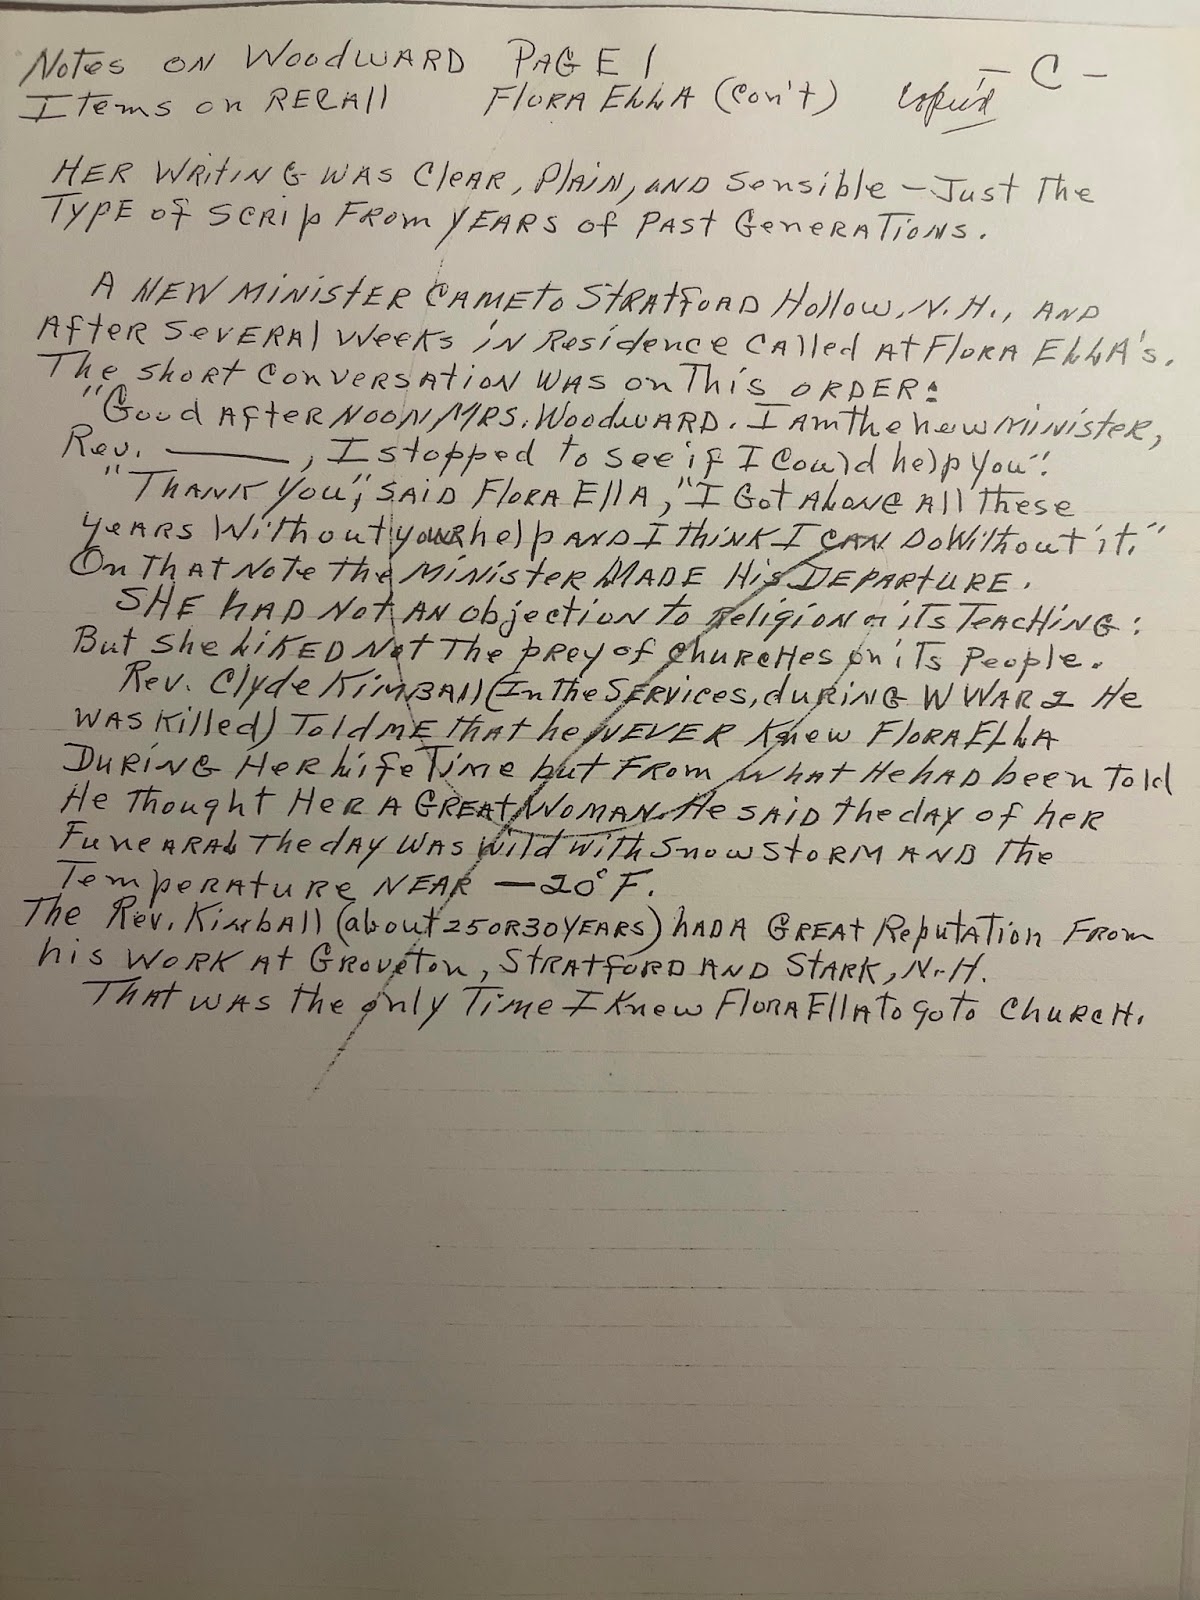 Notes on Woodward Page 1 - C -
Items on Recall Flora Ella (Con't) Copied
Her writing was clear, plain, and sensible - Just the
Type of scrip from years of past generations.
A new minister came to Stratford Hollow, N.H., and
after several weeks in residence called at Flora Ella's.
The short conversation was on this order:
"Good afternoon Mrs. Woodward. I am the new minister,
Rev. ______, I stopped to see if I could help you".
"Thank you", said Flora Ella, "I got along all these
years without your help and I think I can do without it."
On that note the minister made his departure.
She had not an objection to religion or its teaching:
But she liked not the prey of churches on its people.
Rev. Clyde Kimball (In the Services, during W War 2 He
was killed) Told me that he never knew Flora Ella
During her life Time but from what he had been told
He thought her a great woman. He said the day of her
Funearal the day was wild with snow storm and the
Temperature near -20° F.
The Rev. Kimball (about 25 or 30 years) had a great reputation from
his work at Groveton, Stratford and Stark, N.H.
That was the only Time I knew Flora Ella to go to church.